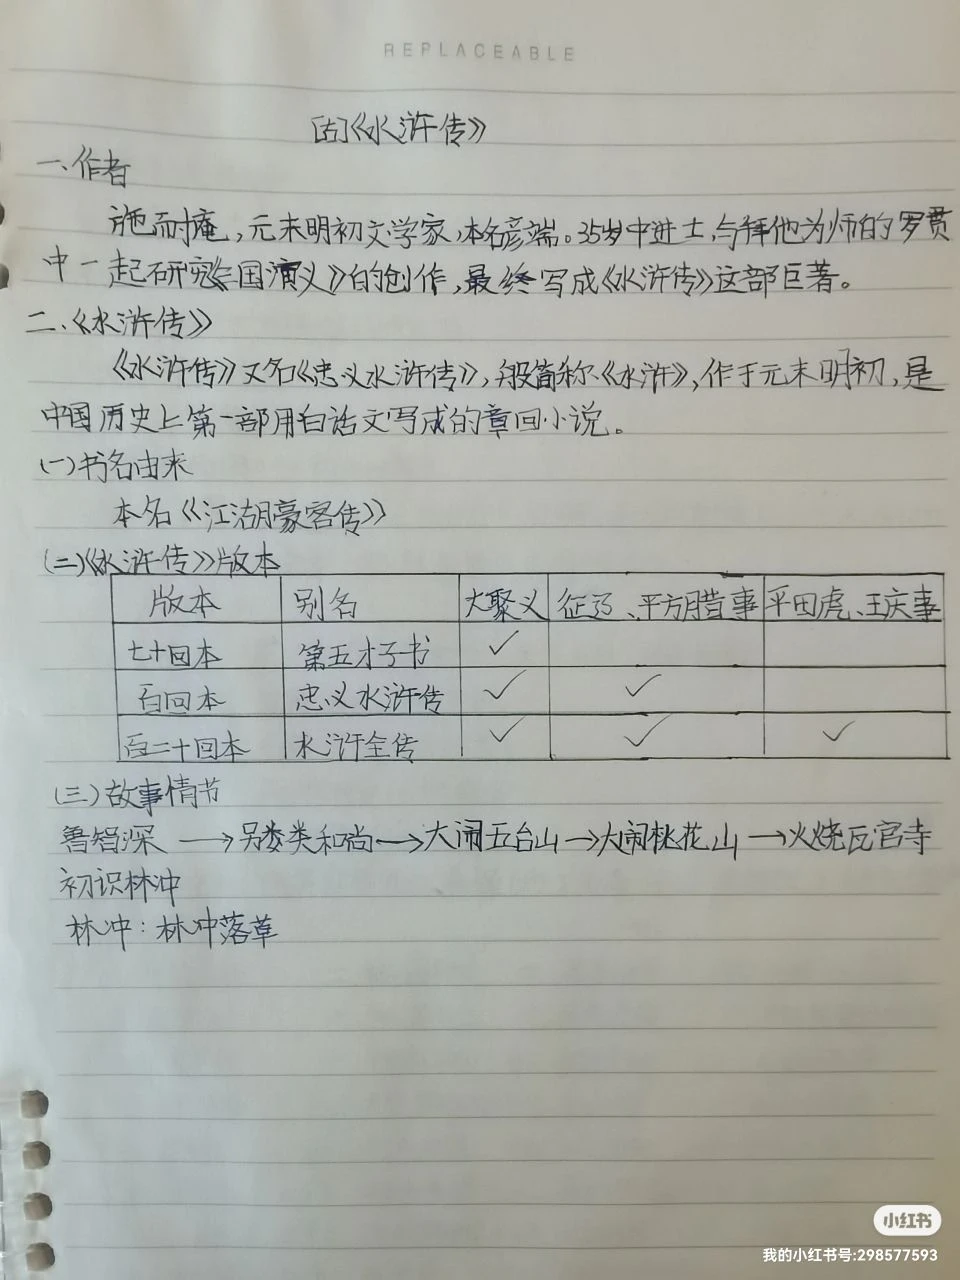 REPLACEABLE
[古]《水浒传》
一、作者
施耐庵，元末明初文学家，本名彦端。35岁中进士，与拜他为师的罗贯
中一起研究《三国演义》的创作，最终写成《水浒传》这部巨著。
二、《水浒传》
《水浒传》又名《忠义水浒传》，一般简称《水浒》，作于元末明初，是
中国历史上第一部用白话文写成的章回小说。
(一)书名由来
本名《江湖豪客传》
(二)《水浒传》版本
版本 别名 大聚义 征辽、平方腊事 平田虎、王庆事
七十回本 第五才子书 ✓
百回本 忠义水浒传 ✓ ✓
百二十回本 水浒全传 ✓ ✓ ✓
(三)故事情节
鲁智深→另类和尚→大闹五台山→大闹桃花山→火烧瓦官寺
初识林冲
林冲：林冲落草
小红书
我的小红书号:298577593